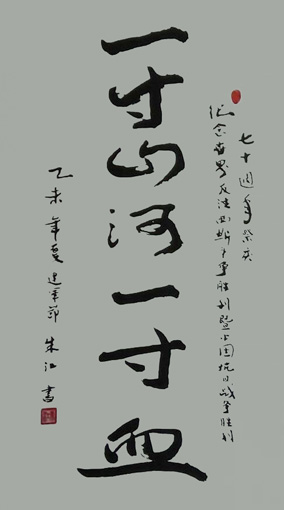 纪念世界反法西斯战争胜利暨中国抗日战争胜利
七十週年祭
一寸山河一寸血
乙未年夏建军节朱江書